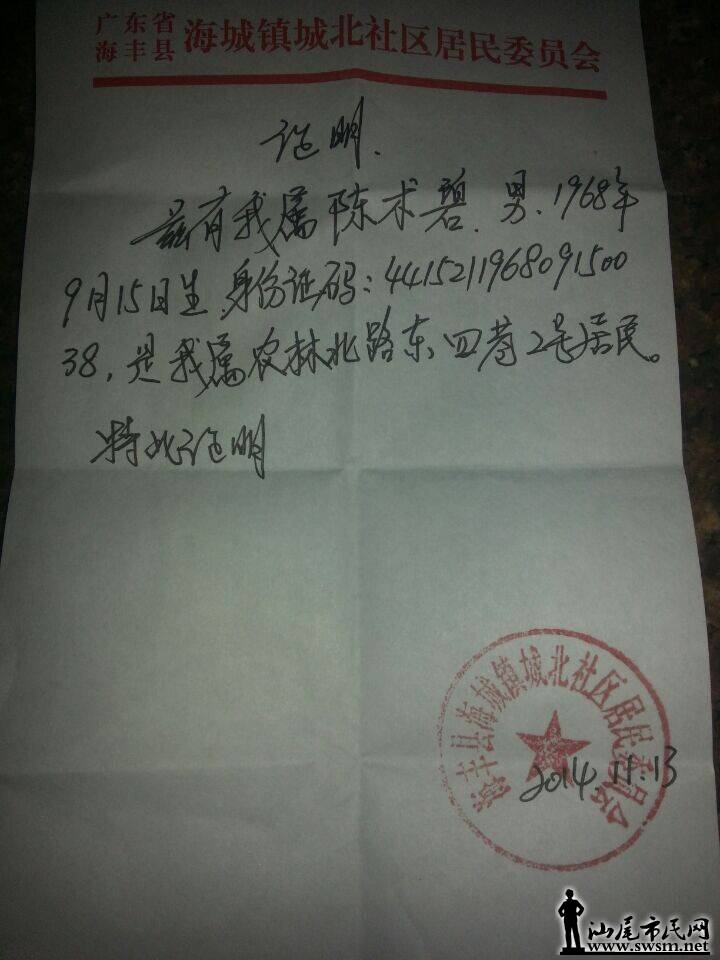 广东省
海丰县 海城镇城北社区居民委员会
证明.
兹有我属陈术碧.男.1968年
9月15日生.身份证码:4415211968091500
38,是我属农林北路东四巷2号居民。
特此证明
海丰县海城镇城北社区居民委员会
2014.11.13
汕尾市民网
www.swsm.net